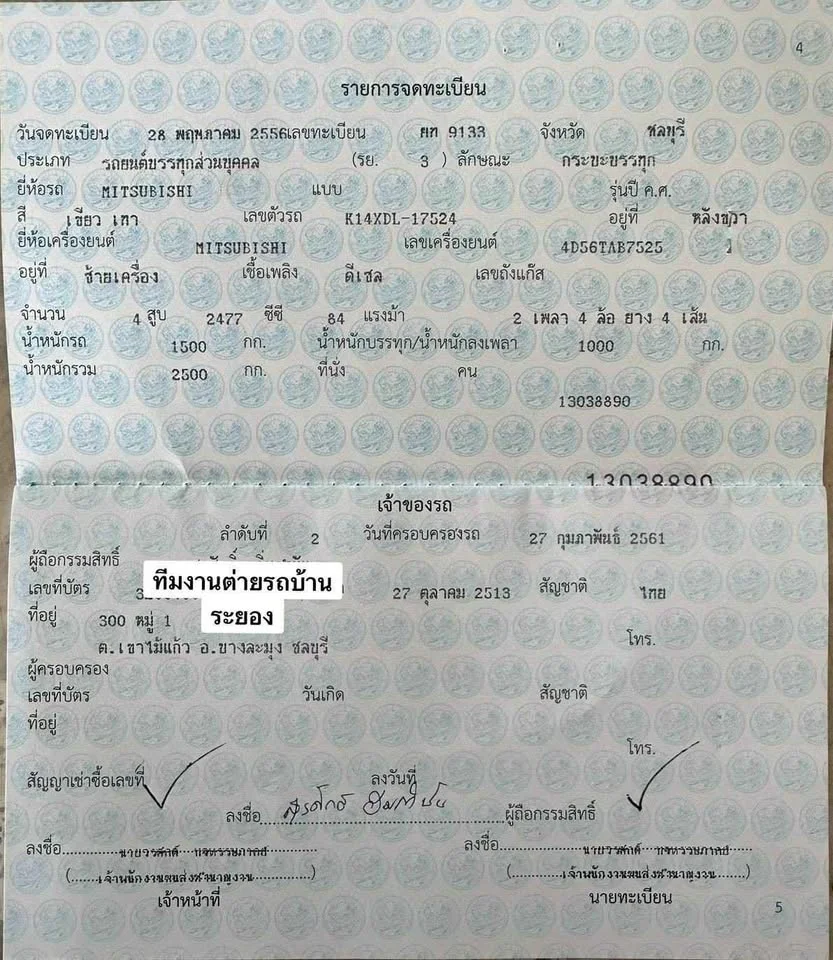 4
รายการจดทะเบียน
วันจดทะเบียน 28 พฤษภาคม 2556 เลขทะเบียน ยท 9133 จังหวัด ชลบุรี
ประเภท รถยนต์บรรทุกส่วนบุคคล (รย. 3 ) ลักษณะ กระบะบรรทุก
ยี่ห้อรถ MITSUBISHI แบบ รุ่นปี ค.ศ.
สี เขียว เทา เลขตัวรถ K14XDL-17524 อยู่ที่ หลังขวา
ยี่ห้อเครื่องยนต์ MITSUBISHI เลขเครื่องยนต์ 4D56TAB7525
อยู่ที่ ซ้ายเครื่อง เชื้อเพลิง ดีเซล เลขถังแก๊ส
จำนวน 4 สูบ 2477 ซีซี 84 แรงม้า 2 เพลา 4 ล้อ ยาง 4 เส้น
น้ำหนักรถ 1500 กก. น้ำหนักบรรทุก/น้ำหนักลงเพลา 1000 กก.
น้ำหนักรวม 2500 กก. ที่นั่ง คน
13038890
13038890
เจ้าของรถ
ลำดับที่ 2 วันที่ครอบครองรถ 27 กุมภาพันธ์ 2561
ผู้ถือกรรมสิทธิ์
ทีมงานต่ายรถบ้าน
ระยอง
เลขที่บัตร 27 ตุลาคม 2513 สัญชาติ ไทย
ที่อยู่ 300 หมู่ 1
ต.เขาไม้แก้ว อ.บางละมุง ชลบุรี โทร.
ผู้ครอบครอง
เลขที่บัตร วันเกิด สัญชาติ
ที่อยู่
โทร.
สัญญาเช่าซื้อเลขที่ ลงวันที่
ลงชื่อ ผู้ถือกรรมสิทธิ์
ลงชื่อ ลงชื่อ
(เจ้าพนักงานขนส่งชำนาญงาน) (เจ้าพนักงานขนส่งชำนาญงาน)
เจ้าหน้าที่ นายทะเบียน
5